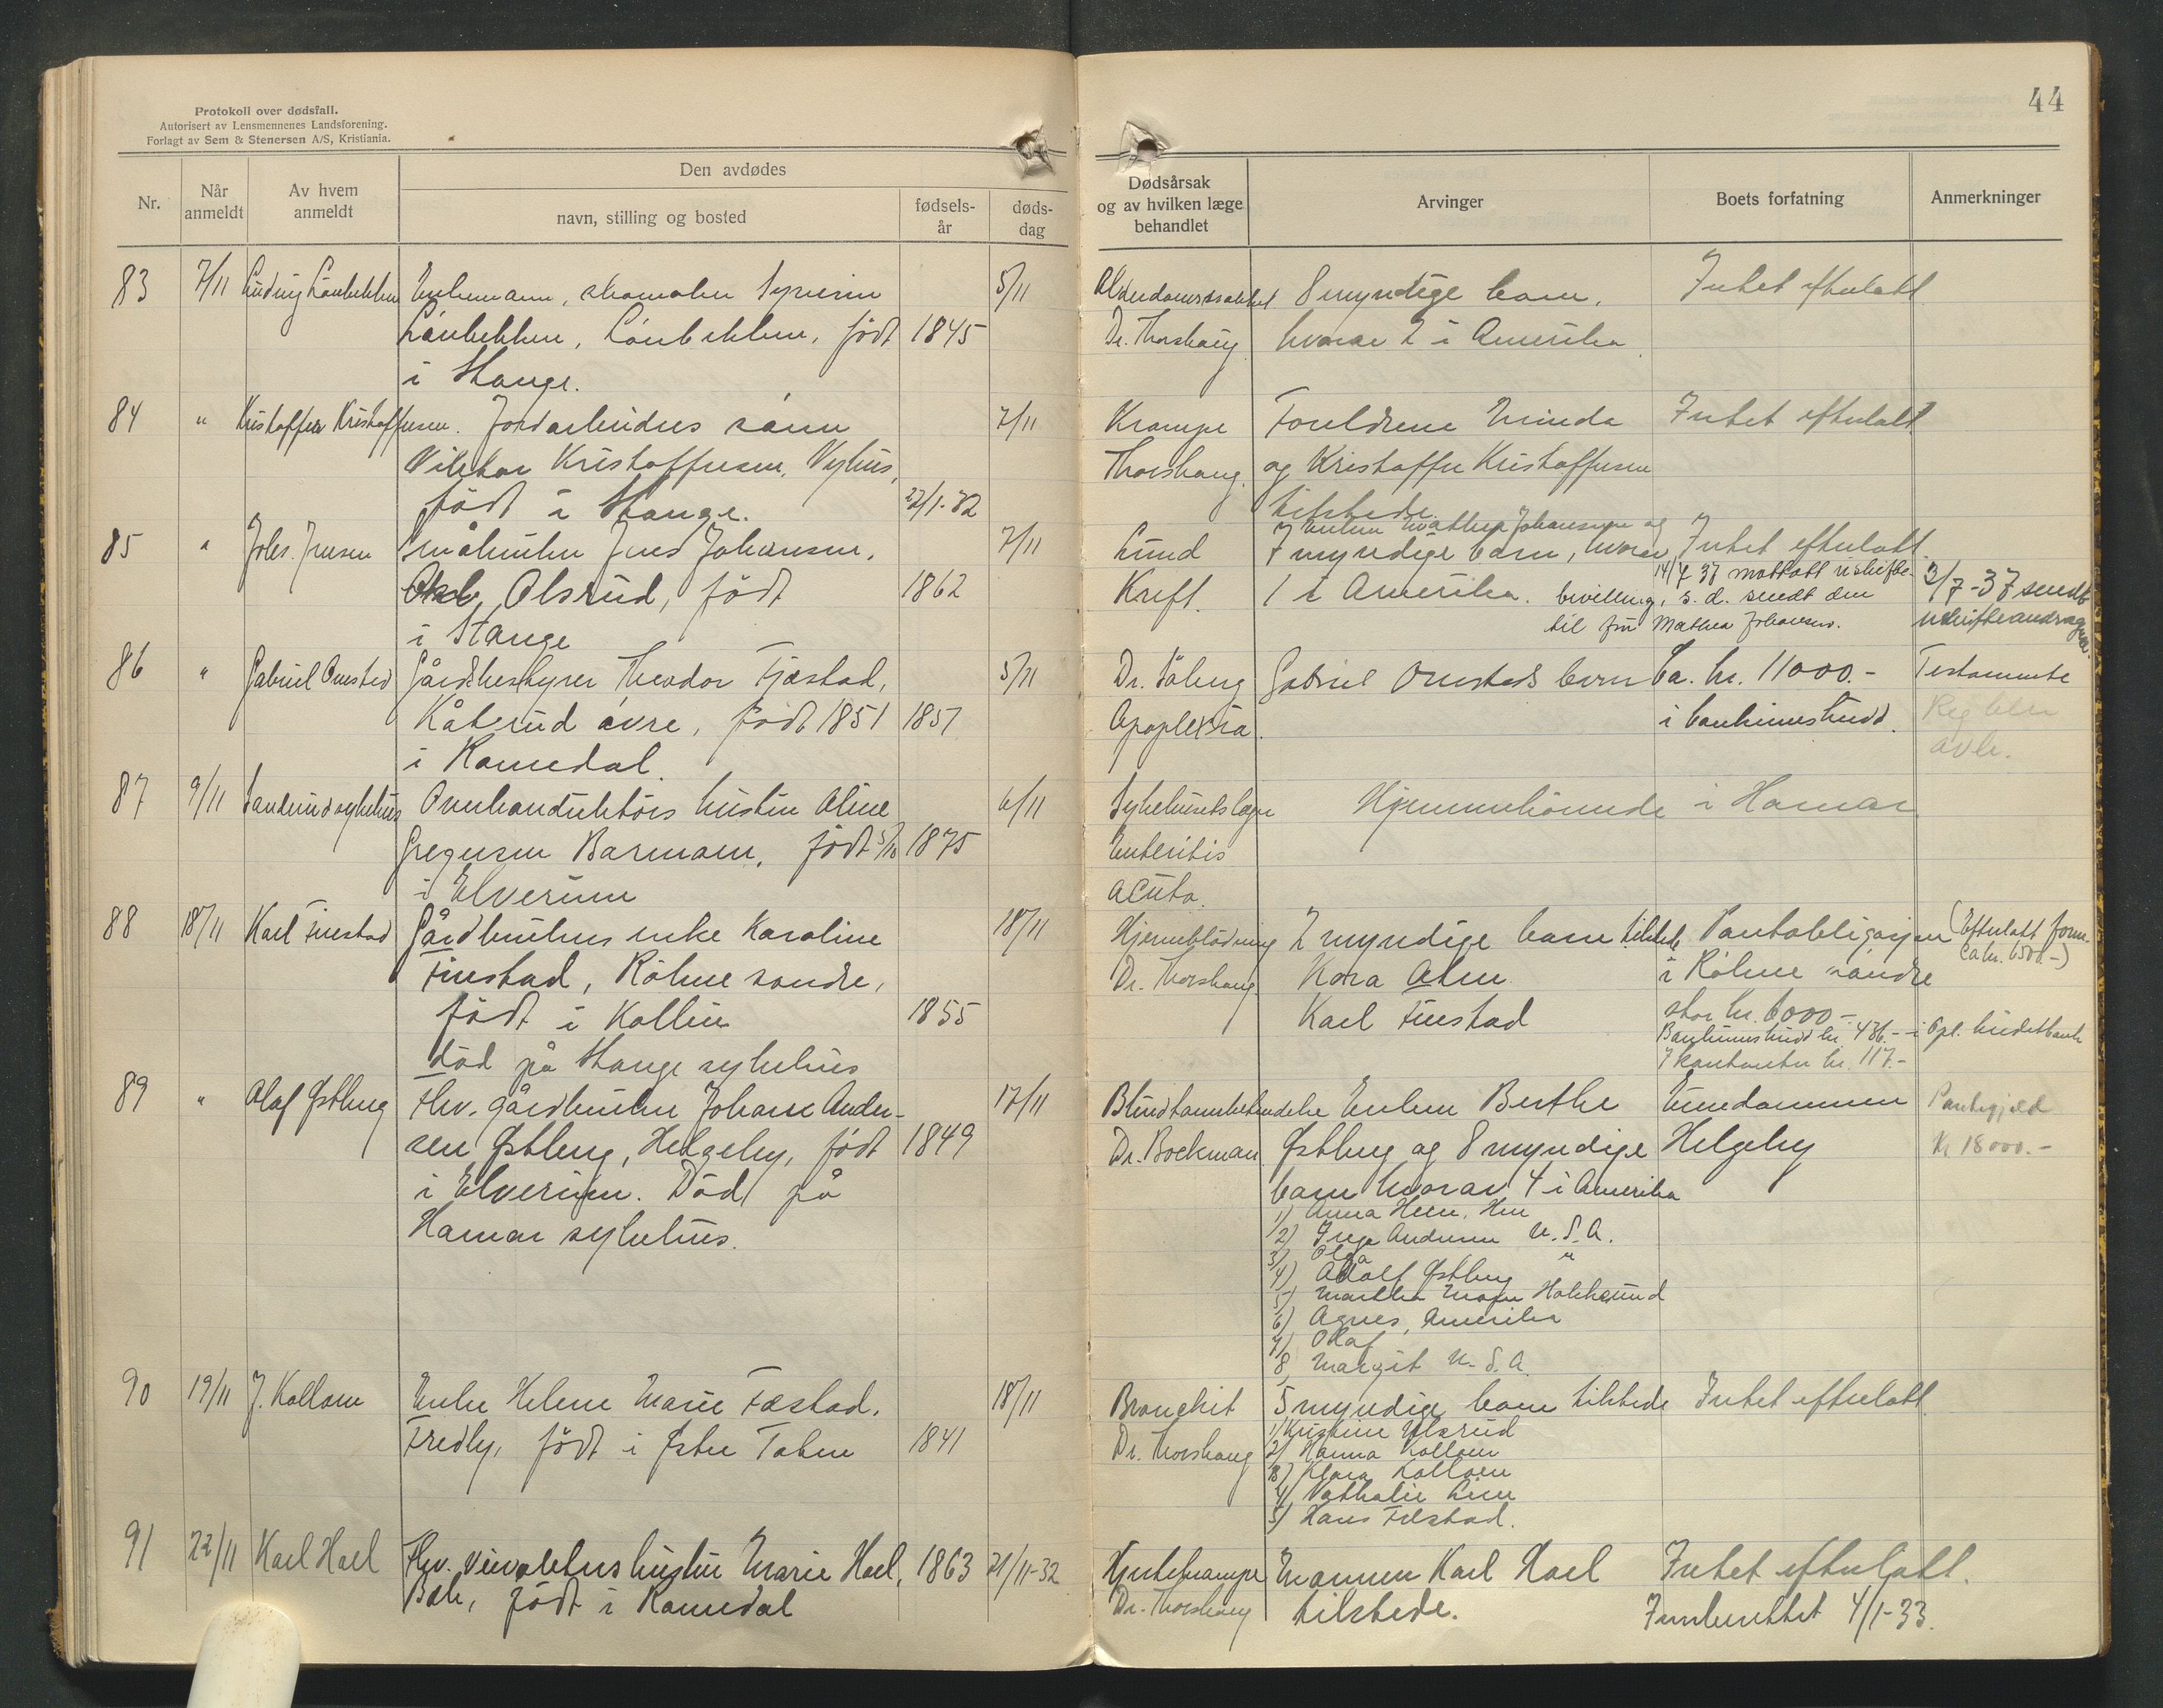 Protokoll over dødsfall.
Autorisert av Lensmennenes Landsforening.
Forlagt av Sem & Stenersen A/S, Kristiania.
44
Nr.
Når anmeldt
Av hvem anmeldt
Den avdødes
navn, stilling og bosted
fødsels-
år
døds-
dag
Dødsårsak
og av hvilken læge
behandlet
Arvinger
Boets forfatning
Anmerkninger
83 7/11 Enkemann, skomaker 5/11 8 myndige barn. Intet efterlatt
født 1845 Dr. Thorshaug hvorav 2 i Amerika
i Stange.
84 " Kristoffer Kristoffersen. Jordarbeiders sønn 7/11 Krampe Foreldrene Minda Intet efterlatt
Viktor Kristoffersen, Nyhus, Thorshaug. og Kristoffer Kristoffersen
født i Stange. 22/1-32 tilstede.
Enken Mathea Johansen og
85 " Johs. Jensen Småbruker Jens Johansen, 7/11 Lund 7 myndige barn, hvorav Intet efterlatt.
Olsrud, født 1862 Kreft. 1 i Amerika. 14/7 37 mottatt uskiftebe-
bevilling, s. d. sendt den 3/7-37 sendt
i Stange til fru Mathea Johansen. uskifteandragende.
86 " Gabriel Onsted Gårdbestyrer Theodor Fjæstad, 5/11 Dr. Gabriel Onsteds barn Ca. kr. 11000.- Testamente
Kåterud øvre, født 1851 1851 Apoplexia. i bankinnskudd.
i Romedal. avh.
87 9/11 Sanderud sykehus Overkonduktørs hustru Oline 6/11 Sykehusets læge Hjemmehørende i Hamar
Gregersen Barmoen, født 5/10 1875 Enteritis
i Elverum acuta.
88 18/11 Karl Finstad Gårdbrukers enke Karoline 18/11 Hjerneblødning 2 myndige barn tilstede Pantobligasjon (Efterlatt form.
ca kr. 6500.-)
Finstad, Røhne søndre, Dr. Thorshaug. Kara Alm i Røhne søndre
født i Kolbu 1855 Karl Finstad stor kr. 6000.-
Bankinnskudd kr. 436.- i Opl. kredittbank
død på Stange sykehus I kontanter kr. 117.-
89 " Olaf Østberg Fhv. gårdbruker Johan Ander- 17/11 Blindtarmbetendelse Enken Berthe Eiendommen Pantegjeld
sen Østberg, Helgeby, født 1849 Dr. Boekman. Østberg og 8 myndige Helgeby Kr 18000.-
i Elverum. Død på barn hvorav 4 i Amerika
Hamar sykehus.
1) Anna Heen,
2) Inga Andersen U. S. A.
3) Olga "
4) Adolf Østberg
5) Martha Moen Hokksund
6) Agnes, Amerika
7) Olaf
8 Margit U. S. A.
90 19/11 J. Kolloen Enke Helene Marie Fæstad, 18/11 Bronchit 5 myndige barn tilstede Intet efterlatt.
Fredly, født i Østre Toten 1841 Dr. Thorshaug
1) Kristine Ulsrud
2) Hanna Kolloen
3) Klara Kolloen
4) Nathalie Lien
5) Hans Filstad.
91 22/11 Karl Hoel Fhv. hustru Marie Hoel, 1863 21/11-32 Hjertekrampe Mannen Karl Hoel Intet efterlatt.
født i Romedal Dr. Thorshaug tilstede. Innberettet 4/1-33.